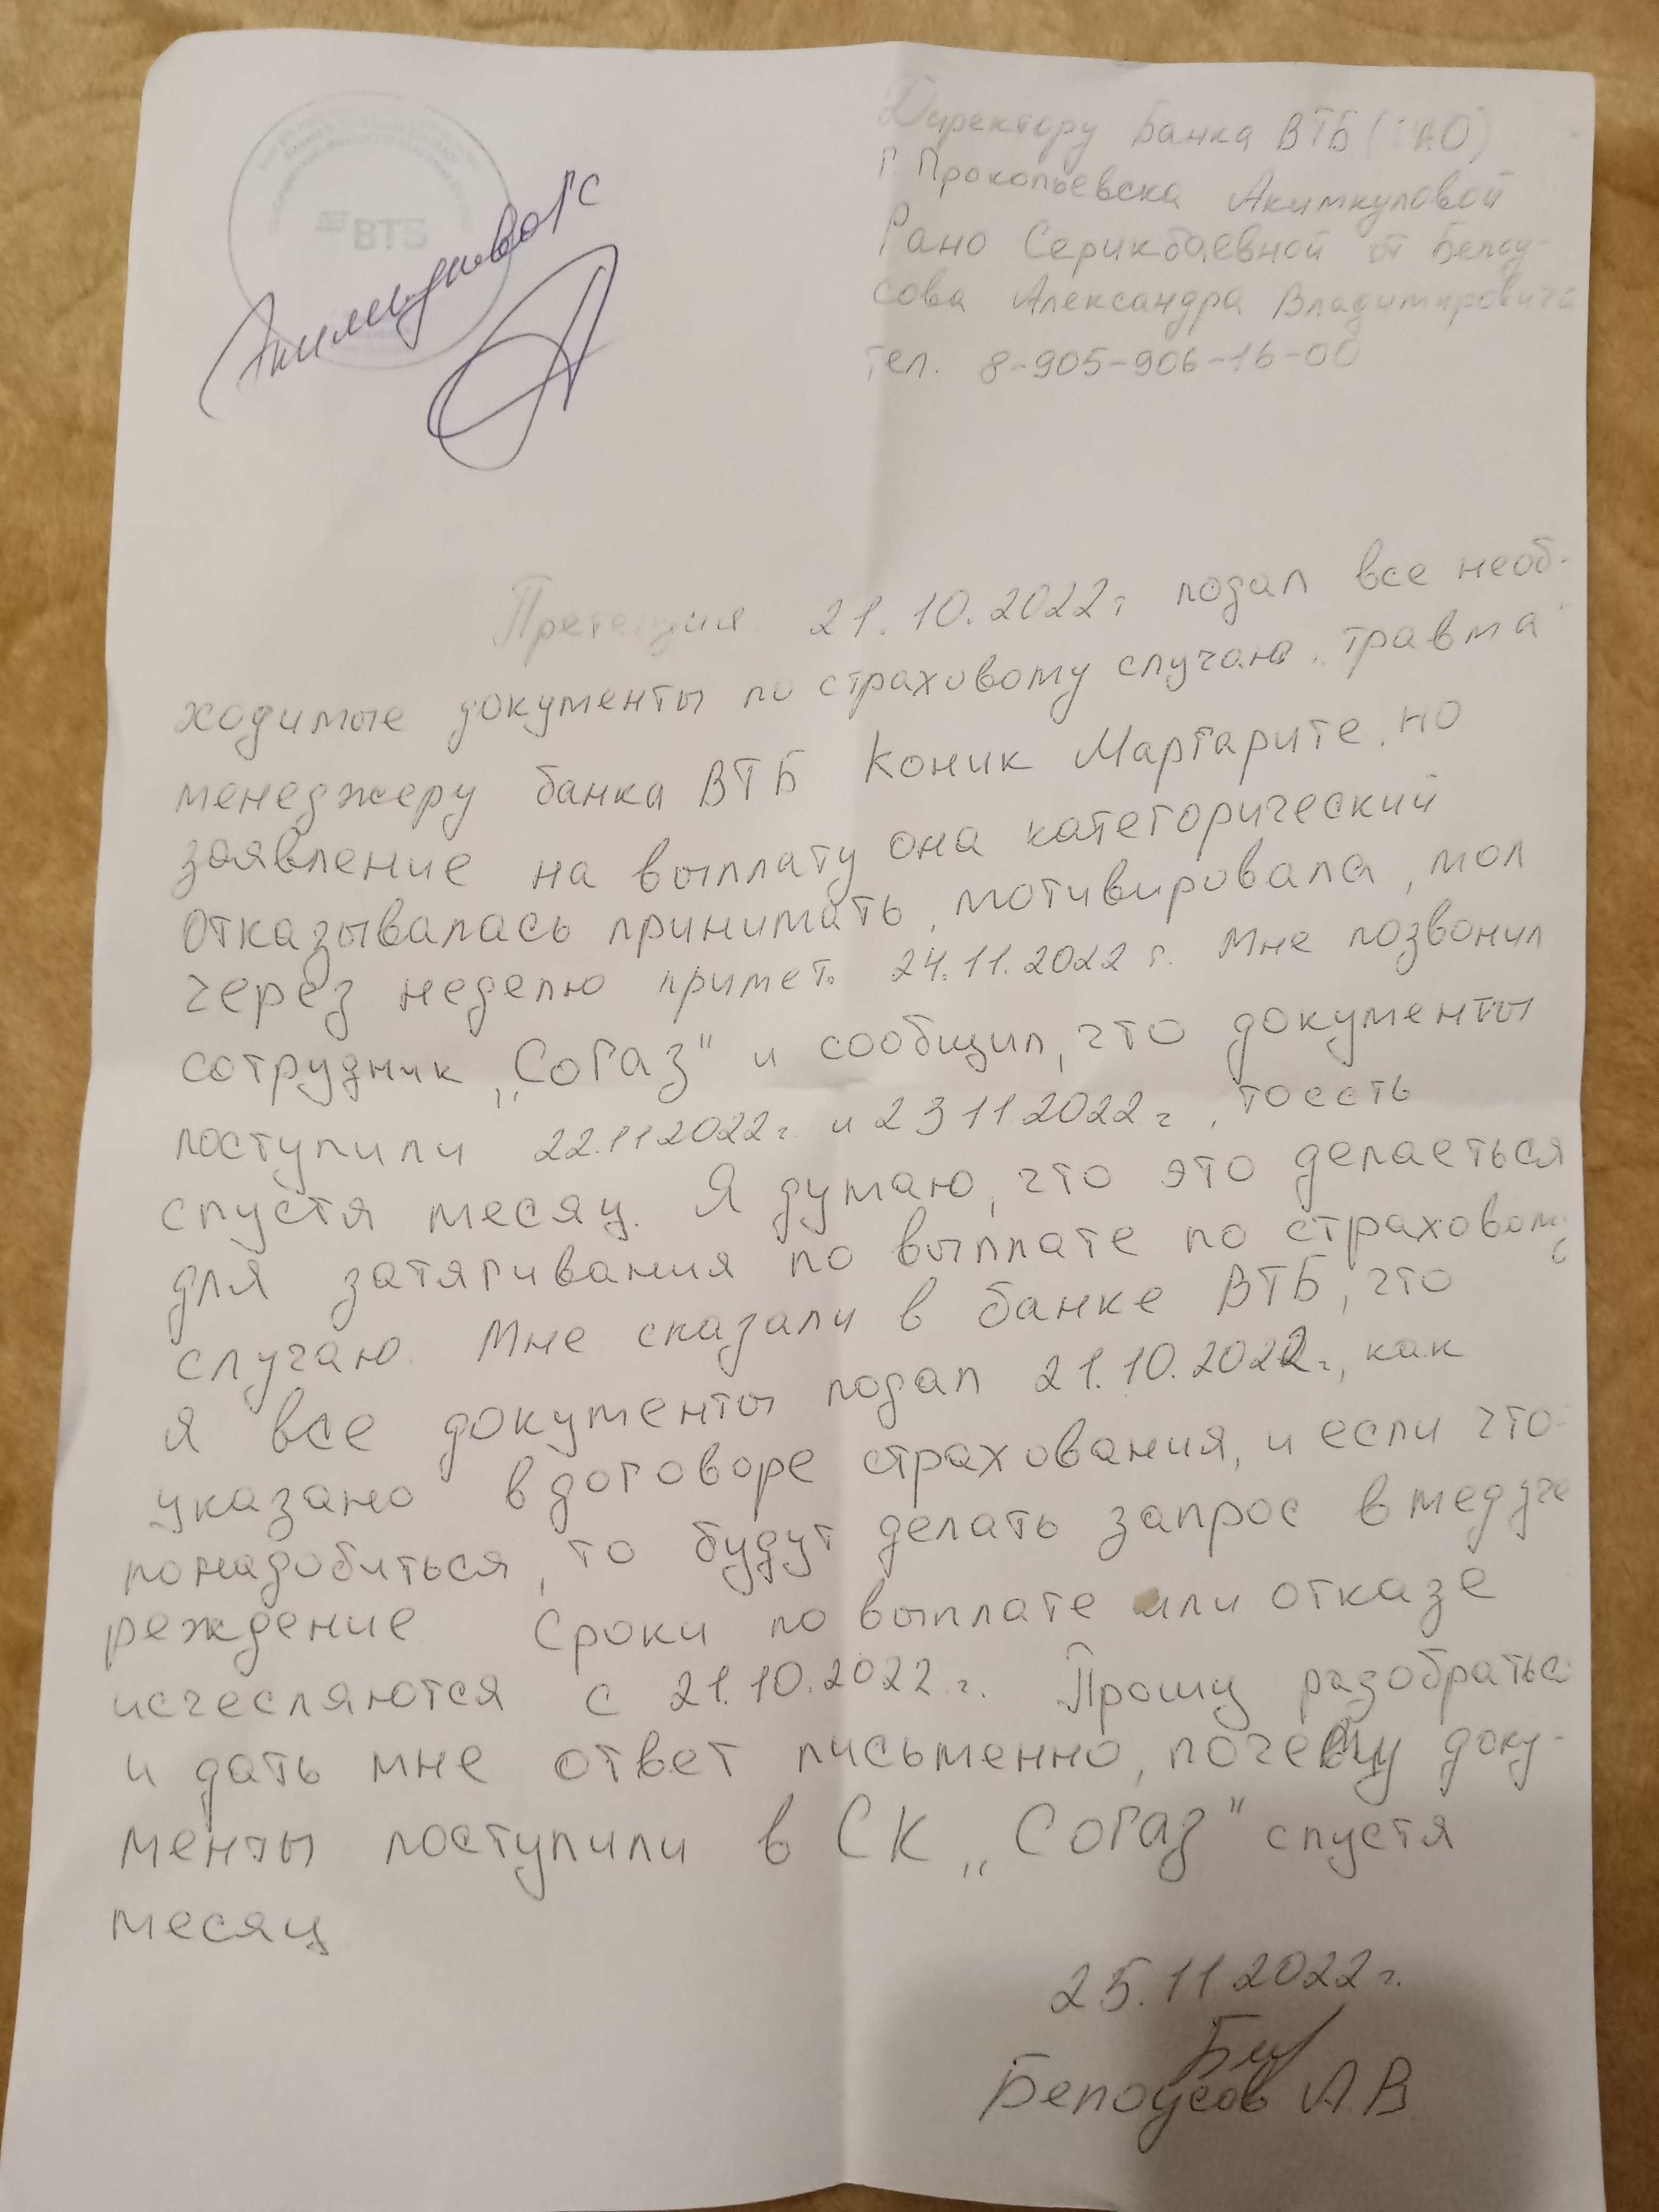 ВТБ
Директору Банка ВТБ (ПАО)
г. Прокопьевска Акимкуловой
Рано Серикбаевной от Белоу-
сова Александра Владимировича
тел. 8-905-906-16-00
Претензия. 21.10.2022г. подал все необ-
ходимые документы по страховому случаю „травма"
менеджеру банка ВТБ Коник Маргарите, но
заявление на выплату она категорический
отказывалась принимать, мотивировала, мол
через неделю примет. 24.11.2022 г. Мне позвонил
сотрудник „Согаз" и сообщил, что документы
поступили 22.11.2022г. и 23.11.2022г., тоесть
спустя месяц. Я думаю, что это делаеться
для затягивания по выплате по страховому
случаю. Мне сказали в банке ВТБ, что
я все документы подал 21.10.2022г., как
указано в договоре страхования, и если что-
понадобиться, то будут делать запрос в медуче
реждение. Сроки по выплате или отказе
исчесляются с 21.10.2022.г. Прошу разобраться
и дать мне ответ письменно, почему доку-
менты поступили в СК „Согаз" спустя
месяц
25.11.2022г.
Белоусов А.В